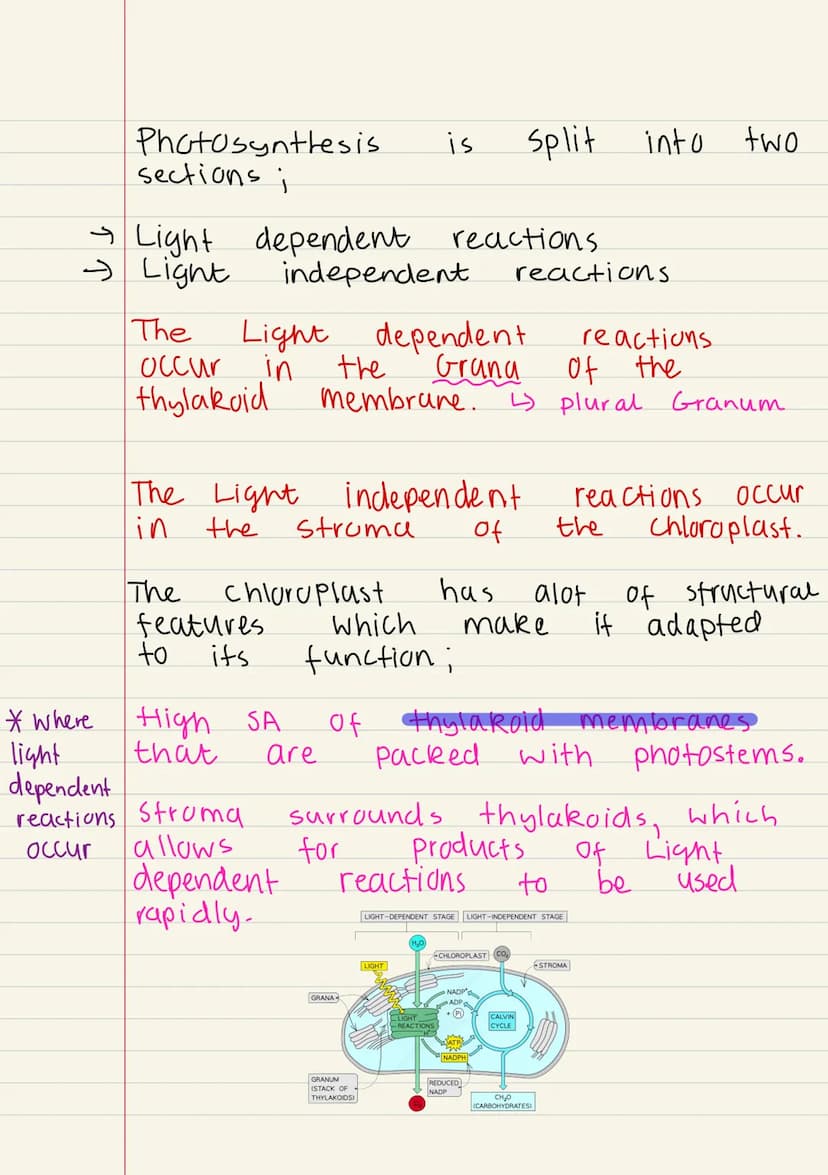 Photosynthesis is split into two
sections ;
→ Light dependent reactions
→ Light independent reactions
The Light dependent reactions
occur in the Grana of the
thylakoid membrane. ↳ plural Granum
The Light independent reactions occur
in the stroma of the chloroplast.
The chloroplast has alot of structural
features which make it adapted
to its function ;
* where
light
dependent
reactions
occur
High SA of thylakoid membranes
that are packed with photostems.
Stroma surrounds thylakoids, which
allows for products of Light
dependent reactions to be used
rapidly.
LIGHT-DEPENDENT STAGE
LIGHT-INDEPENDENT STAGE
H₂O
CHLOROPLAST
CO₂
LIGHT
STROMA
GRANA
NADP⁺
ADP
+ Pi
LIGHT
REACTIONS
H⁺
CALVIN
CYCLE
ATP
NADPH
GRANUM
(STACK OF
THYLAKOIDS)
REDUCED
NADP
CH₂O
(CARBOHYDRATES)